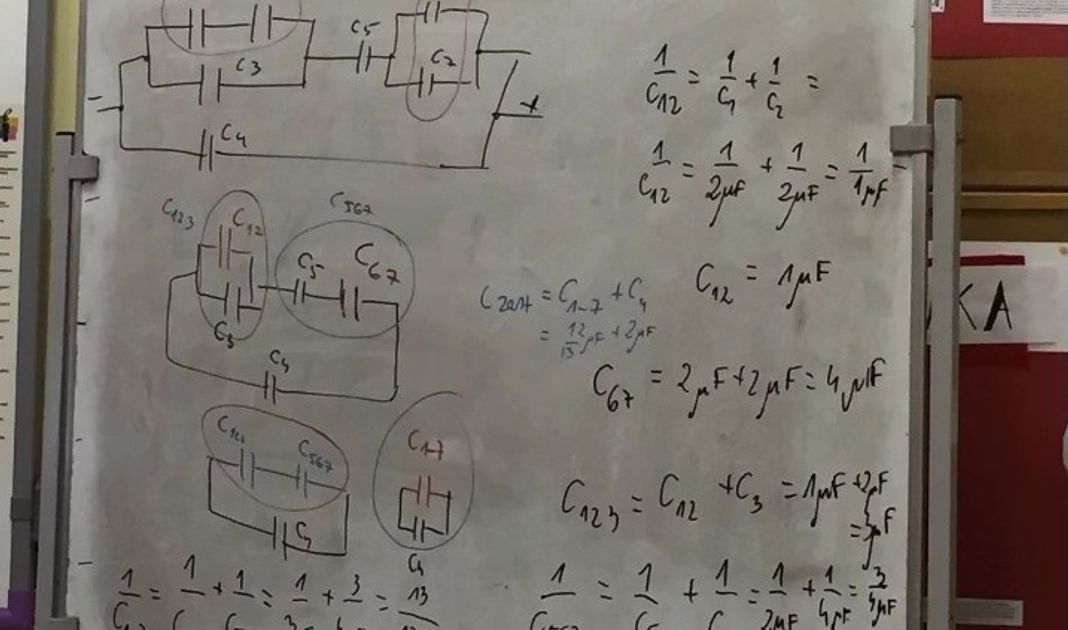 C5
C3
C7
C4
-
+
1/C12 = 1/C1 + 1/C2 =
1/C12 = 1/2μF + 1/2μF = 1/1μF
C123
C12
C567
C5
C67
C3
C4
C12 = 1μF
= C1-7 + C4
= 12/13 μF + 2μF
C67 = 2μF + 2μF = 4μF
C567
C1-7
C4
C123 = C12 + C3 = 1μF + 2μF
= 3μF
KA
1/C = 1/C + 1/C = 1/3 + 3/4 = 13/12
1/C567 = 1/C5 + 1/C = 1/2μF + 1/4μF = 3/4μF